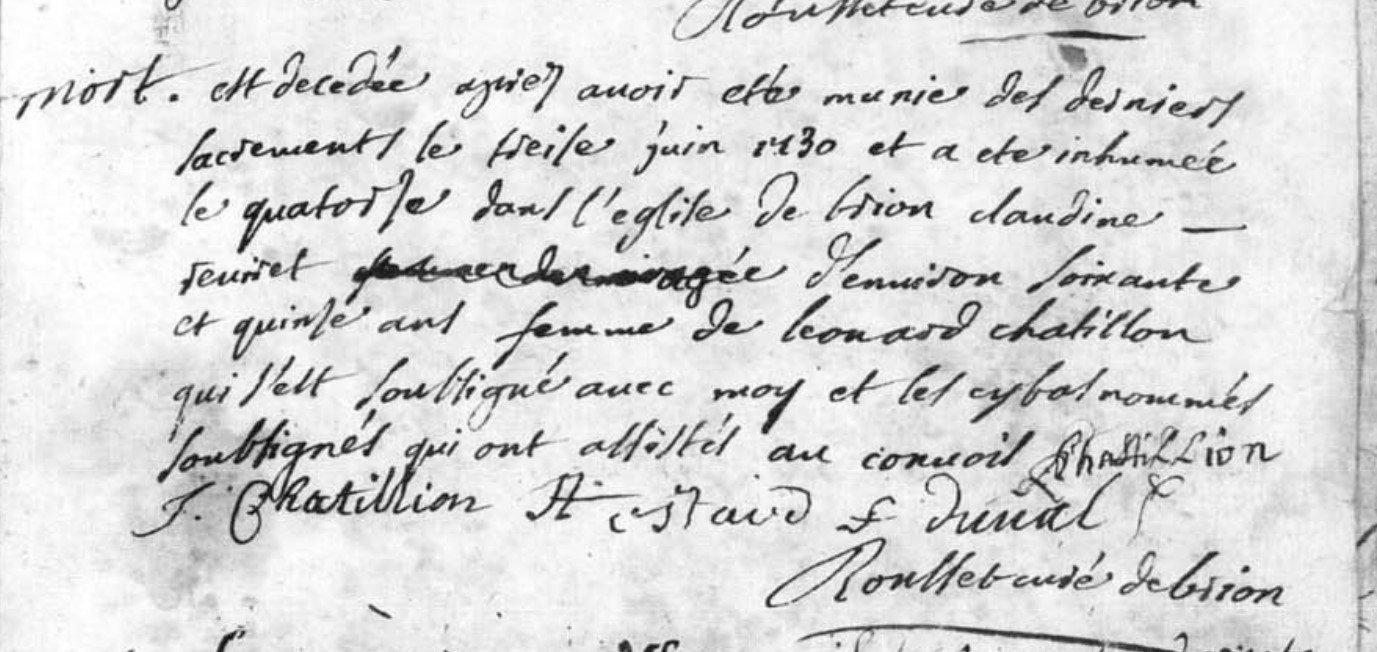 Rousset curé de brion
mort. est decedée apres avoir eté munie des derniers
sacrements le treise juin 1730 et a ete inhumée
le quatorse dans l'eglise de brion claudine
agée d'environ soixante
et quinse ans femme de leonard chatillon
qui s'est soubsigné avec moy et les cybas nommés
soubsignés qui ont assistés au convois Chatillion
J. Chatillion duval
Rousset curé de brion